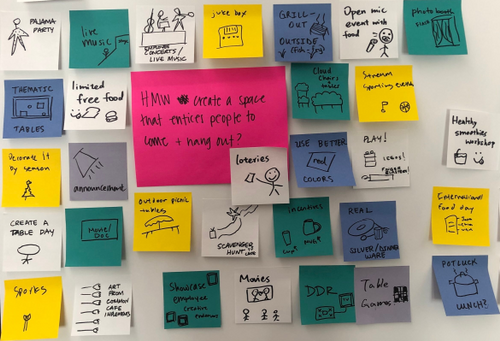 PAJAMA
PARTY
live
music
SUMMER
CONCERTS/
LIVE MUSIC
juke box
GRILL-
OUT
OUTSIDE
Open mic
event with
food
photo booth
THEMATIC
TABLES
limited
free food
HMW create a space
that entices people to
come + hang out?
Cloud
Chairs +
tables
Sporting events
Healthy
smoothies
workshop
Decorate it
by season
announcement
loteries
USE BETTER
COLORS
PLAY!
LEGOS!
CREATE A
TABLE DAY
Movie/
DOC
Outdoor picnic
tables
SCAVENGER
HUNT
Incentives
REAL
SILVER/DINNER
WARE
International
food day
Sporks
ART
FROM
COMMON
CAFE
Showcase
employee
creative
Movies
DDR
Table
Games
POTLUCK
LUNCH?